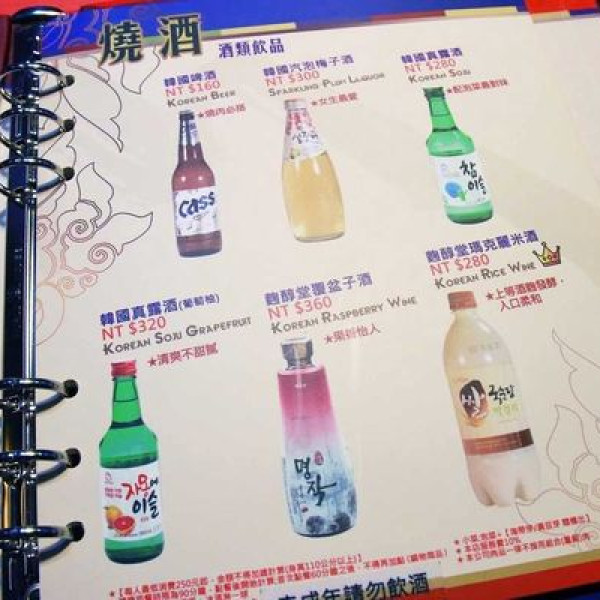 燒酒 酒類飲品
韓國啤酒
NT $160
KOREAN BEER
★燒肉必搭
韓國汽泡梅子酒
NT $300
SPARKLING PLUM LIQUOR
★女生最愛
韓國真露酒
NT $280
KOREAN SOJU
★配泡菜最對味
cass
참이슬
韓國真露酒(葡萄柚)
NT $320
KOREAN SOJU GRAPEFRUIT
★清爽不甜膩
麴醇堂覆盆子酒
NT $360
KOREAN RASPBERRY WINE
★果香怡人
麴醇堂瑪克麗米酒
NT $280
KOREAN RICE WINE
★上等酒麴發酵，
入口柔和
자몽에
이슬
명작
쌀
국순당
막걸리
未成年請勿飲酒